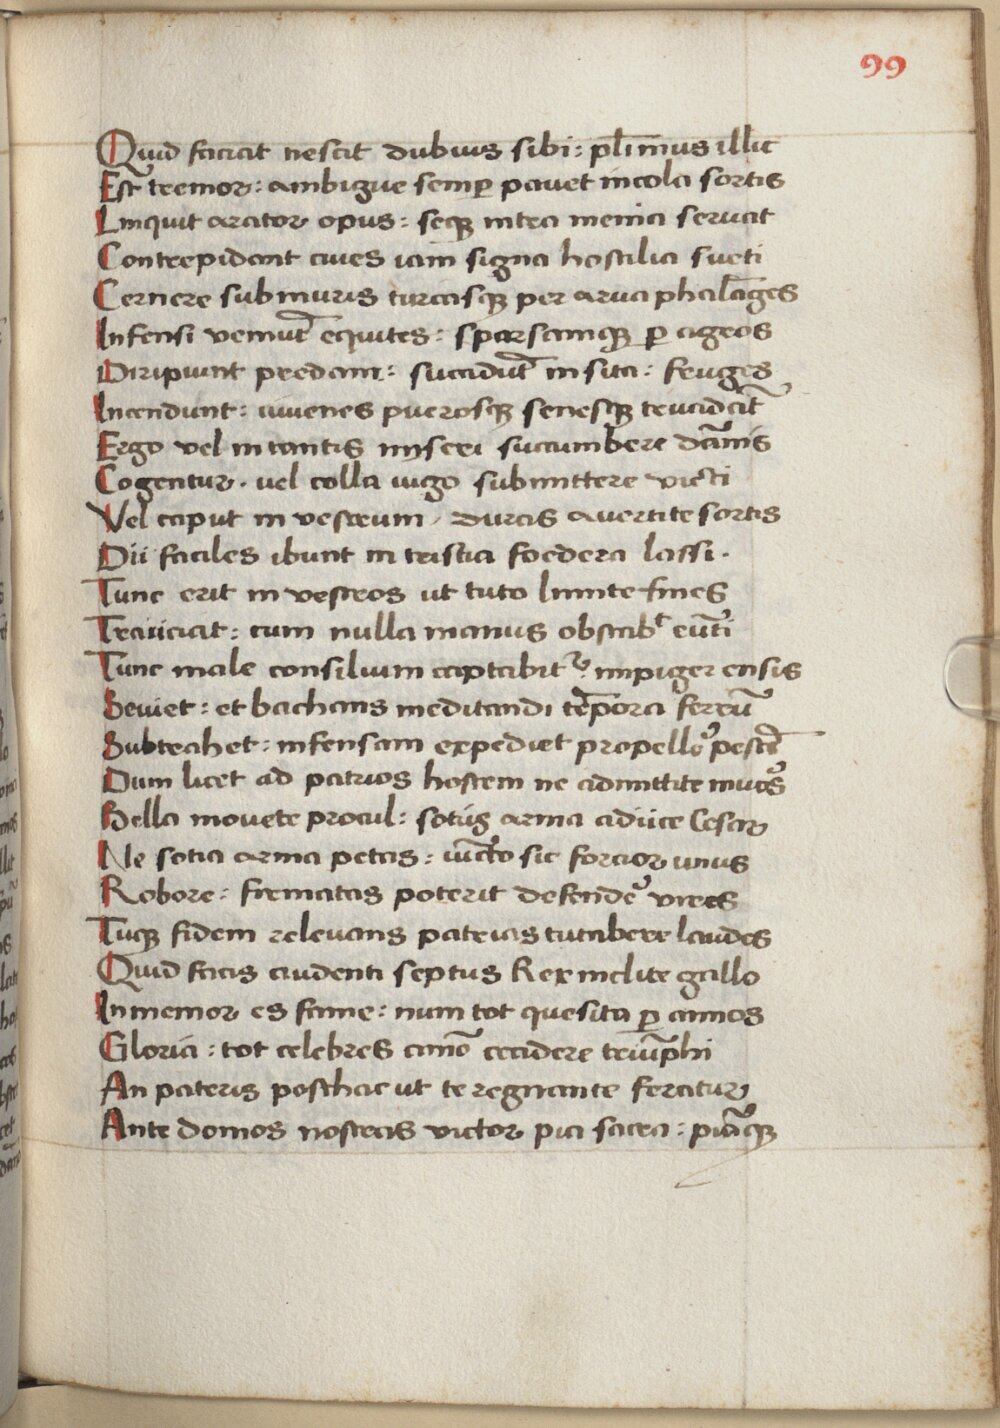 99
Quid faciat nescit dubius sibi: pl̄imus illic
Est tremor: ambigue semꝑ pauet incola sortis
Linquit arator opus: seqꝫ intra menia seruat
Contrepidant ciues iam signa hostilia sueti
Cernere sub muris turcasqꝫ per arua phalāges
Infensi veniūt equites: sparsamqꝫ ꝑ agros
Diripiunt predam: succidūt insita: fruges
Incendunt: iuuenes puerosqꝫ senesqꝫ trucidāt
Ergo vel in tantis miseri succumbere dānis
Cogentur. uel colla iugo submittere victi
Vel caput in vestrum, duras auertite sortis
Dii faciles ibunt in tristia foedera lassi.
Tunc erit in vestros ut tuto limite fines
Traiiciat: cum nulla manus obstabᵗ eūti
Tunc male consilium captabitᷣ impiger ensis
Seuiet: et bachans meditandi tēpora ferrū
Subtrahet: infensam expediet propellē pestē
Dum licet ad patrios hostem ne admittite muros
Bella mouete procul: sotiis arma adiice Cesar
Ne sotia arma petas: iūcto sic fortior unius
Robore: firmatas poterit defendē vires
Tuqꝫ fidem releuans patrias tutabere laudes
Quid facis audenti septus Rex inclite gallo
Inmemor es fame: num tot quesita ꝑ annos
Gloria: tot celebres animo cecidere triūphi
An pateris posthac ut te regnante feratur
Ante domos nostras victor pia sacra: piāqꝫ